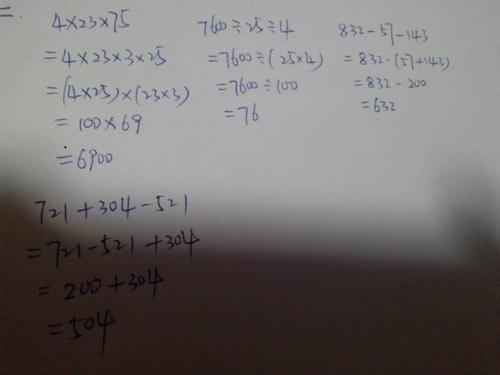 二.
4×23×75
=4×23×3×25
=(4×25)×(23×3)
=100×69
=6900
7600÷25÷4
=7600÷(25×4)
=7600÷100
=76
832-57-143
=832-(57+143)
=832-200
=632
721+304-521
=721-521+304
=200+304
=504